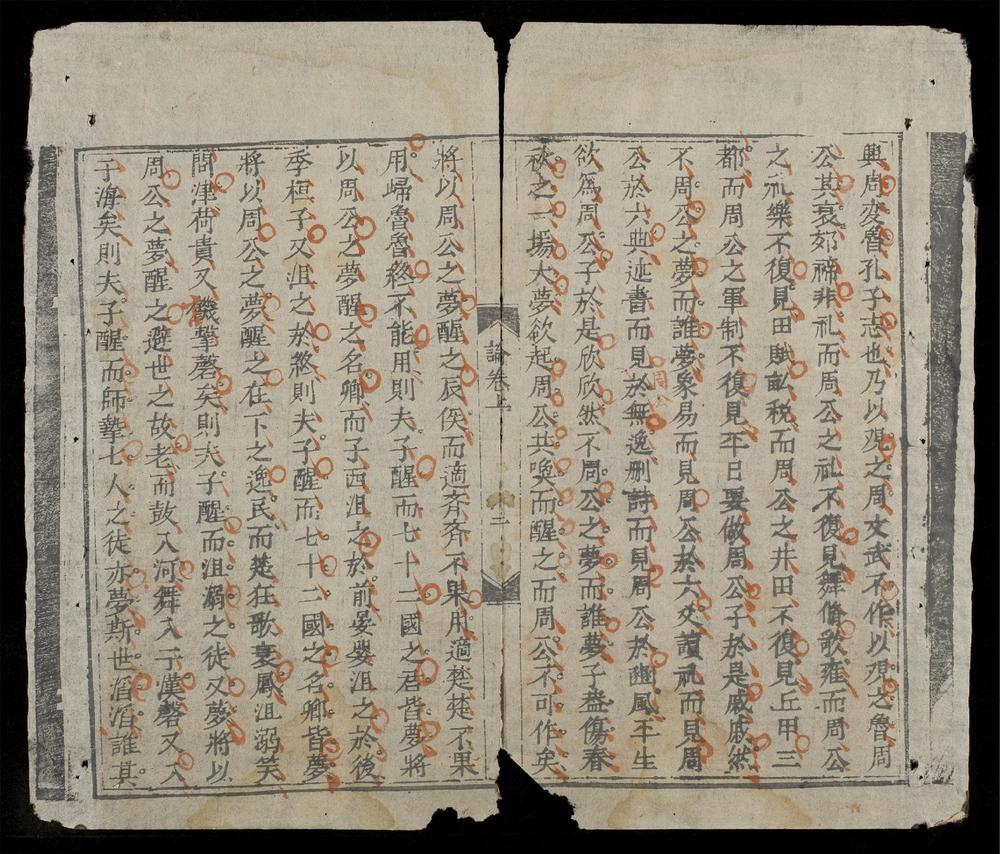 興周変魯孔子志也乃以覌之周文武不作以覌之魯周
公其衰郊禘非礼而周公之礼不復見舞佾歌雍而周公
之礼樂不復見田賦畝税而周公之井田不復見丘甲三
都而周公之軍制不復見平日要做周公子於是戚戚然
不周公之夢而誰夢象易而見周公於六爻讀礼而見周
公於六典述書而見於無逸删詩而見周公於豳風平生
欲爲周公子於是欣欣然不周公之夢而誰夢子盖傷春
秋之一場大夢欲起周公共喚而醒之而周公不可作矣
論卷上
二
將以周公之夢醒之辰侯而適齐齐不果用適楚楚不果
用歸魯魯終不能用則夫子醒而七十二國之君皆夢將
以周公之夢醒之名卿而子西沮之於前晏嬰沮之於後
季桓子又沮之於終則夫子醒而七十二國之名卿皆夢
將以周公之夢醒之在下之逸民而楚狂歌衰鳳沮溺笑
問津荷蕢又譏擊磬矣則夫子醒而沮溺之徒又夢將以
周公之夢醒之避世之故老而鼓入河舞入于漢磬又入
于海矣則夫子醒而師摯七人之徒亦夢斯世滔滔誰其